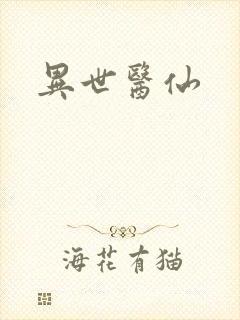 異世醫仙
海花有猫